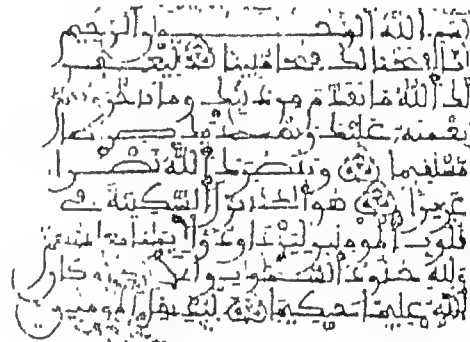 بسم الله الرحمن الرحيم
انا فتحنا لك فتحا مبينا ليغفر
لك الله ما تقدم من ذنبك وما تاخر ويتم
نعمته عليك ويهديك صرطا
مستقيما وينصرك الله نصرا
عزيزا هو الذي انزل السكينة في
قلوب المومنين ليزدادوا ايمنا
ولله جنود السموت والارض وكان
الله عليما حكيما ليدخل المومنين